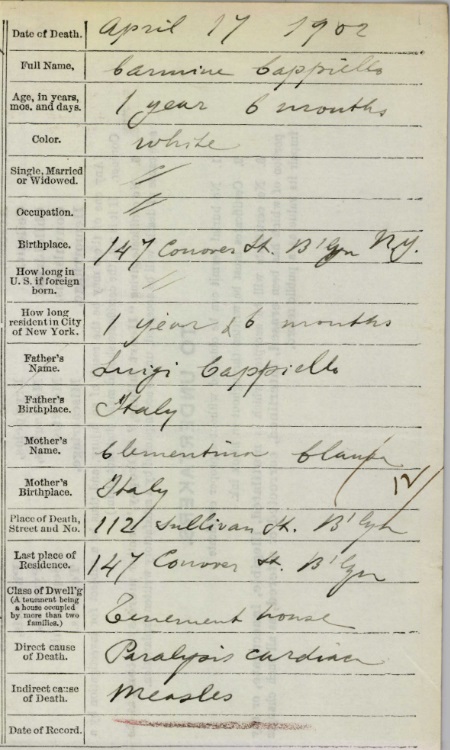 Date of Death. April 17 1902
Full Name, Carmine Cappiello
Age, in years,
mos. and days. 1 year 6 months
Color. white
Single, Married
or Widowed. //
Occupation. //
Birthplace. 147 Conover St. B'lyn N.Y.
How long in
U. S. if foreign
born. //
How long
resident in City
of New York. 1 year & 6 months
Father's
Name. Luigi Cappiello
Father's
Birthplace. Italy
Mother's
Name. Clementina
Mother's
Birthplace. Italy 12/
Place of Death,
Street and No. 112 Sullivan St. B'lyn
Last place of
Residence. 147 Conover St. B'lyn
Class of Dwell'g
(A tenement being
a house occupied
by more than two
families.) Tenement house
Direct cause
of Death. Paralysis cardiaca
Indirect cause
of Death. Measles
Date of Record.